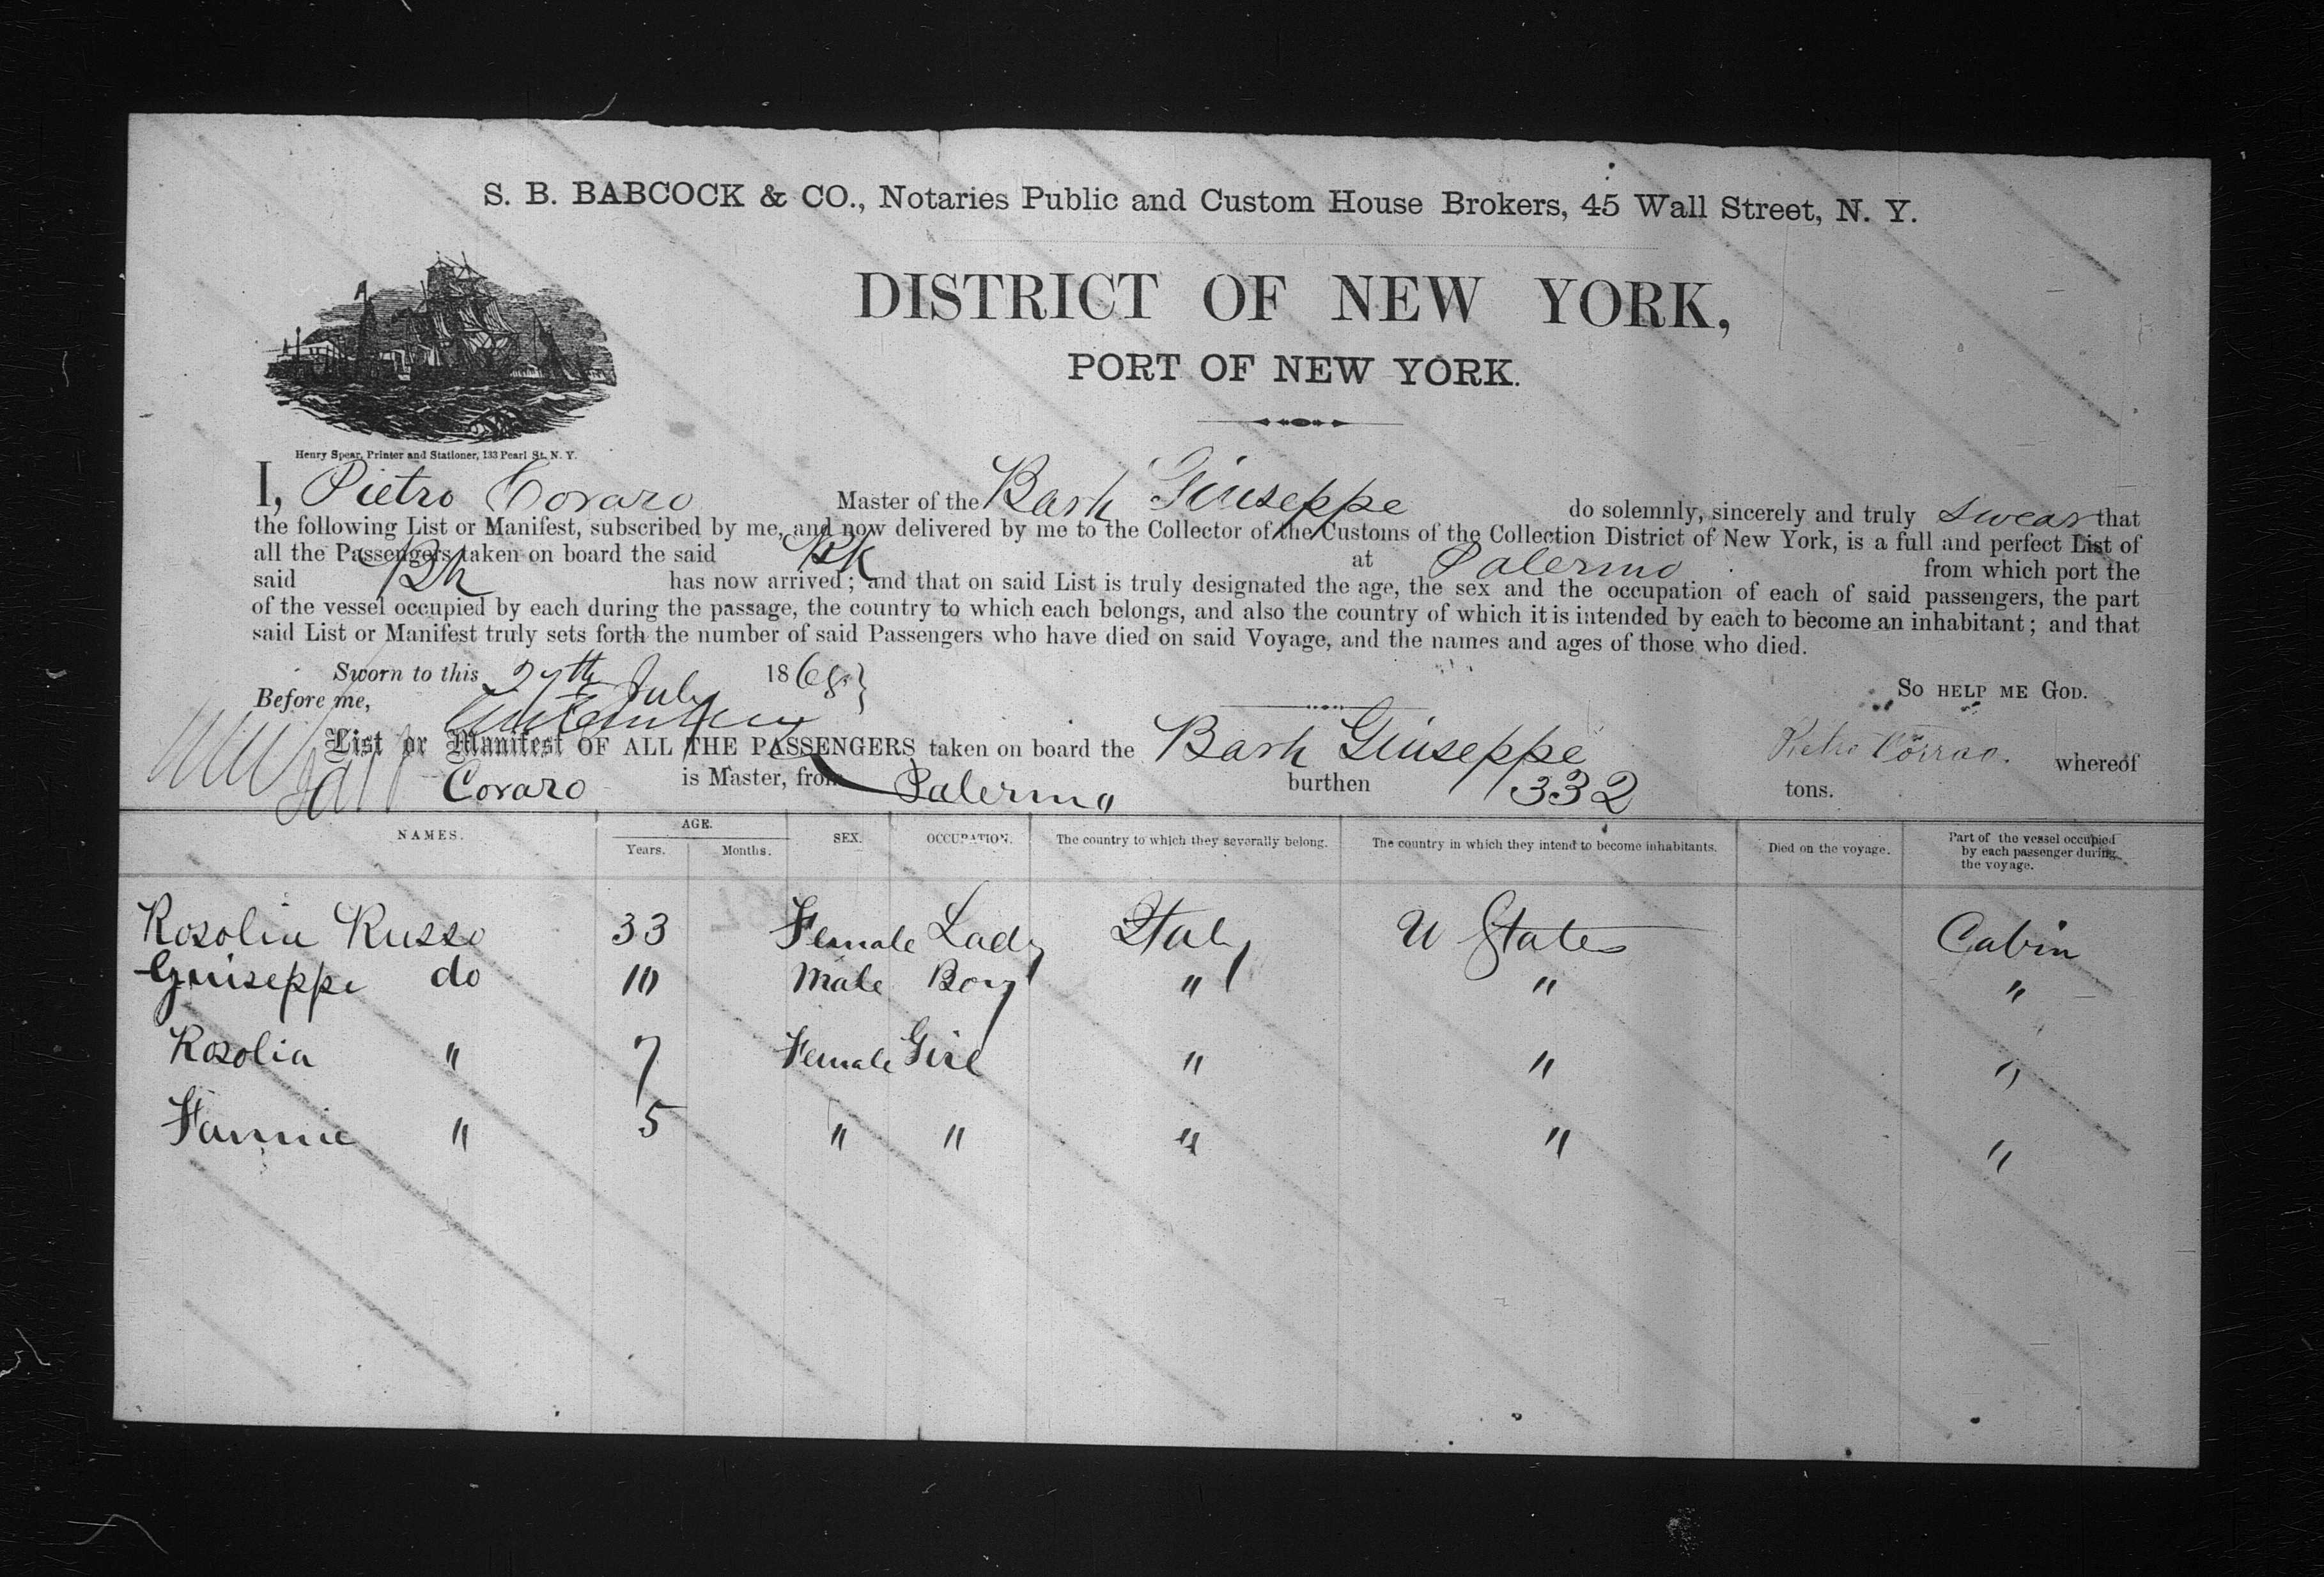 S. B. BABCOCK & CO., Notaries Public and Custom House Brokers, 45 Wall Street, N. Y.
DISTRICT OF NEW YORK,
PORT OF NEW YORK.
Henry Spear, Printer and Stationer, 133 Pearl St. N. Y.
I, Pietro Coraro Master of the Bark Giuseppe do solemnly, sincerely and truly swear that
the following List or Manifest, subscribed by me, and now delivered by me to the Collector of the Customs of the Collection District of New York, is a full and perfect List of
all the Passengers taken on board the said Bk at Palermo from which port the
said Bk has now arrived; and that on said List is truly designated the age, the sex and the occupation of each of said passengers, the part
of the vessel occupied by each during the passage, the country to which each belongs, and also the country of which it is intended by each to become an inhabitant; and that
said List or Manifest truly sets forth the number of said Passengers who have died on said Voyage, and the names and ages of those who died.
Sworn to this 27th July 1868. } SO HELP ME GOD.
Before me,
List or Manifest OF ALL THE PASSENGERS taken on board the Bark Giuseppe Pietro Corrao. whereof
Coraro is Master, from Palermo burthen 332 tons.
NAMES. AGE. Years. Months. SEX. OCCUPATION. The country to which they severally belong. The country in which they intend to become inhabitants. Died on the voyage. Part of the vessel occupied by each passenger during the voyage.
Rosolia Russo 33 Female Lady Italy U States Cabin
Guiseppe do 10 Male Boy " " "
Rosolia " 7 Female Girl " " "
Fannie " 5 " " " " "